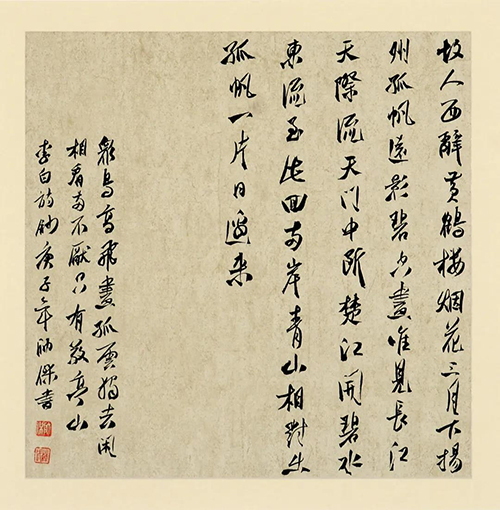 故人西辭黄鶴楼烟花三月下揚
州孤帆遠影碧空盡唯見長江
天際流天门中断楚江開碧水
東流至此回兩岸青山相對出
孤帆一片日邊来
衆鳥高飛盡孤雲獨去閑
相看兩不厭只有敬亭山
李白詩鈔庚子年炳傑書